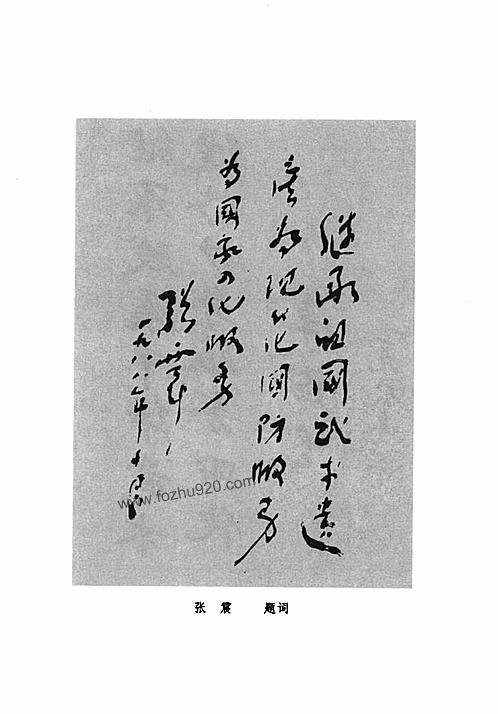 继承祖國武术遗
产为现代化國防服务
为國家四化服务
張震
一九八八年十月
www.fozhu920.com
张 震 题词